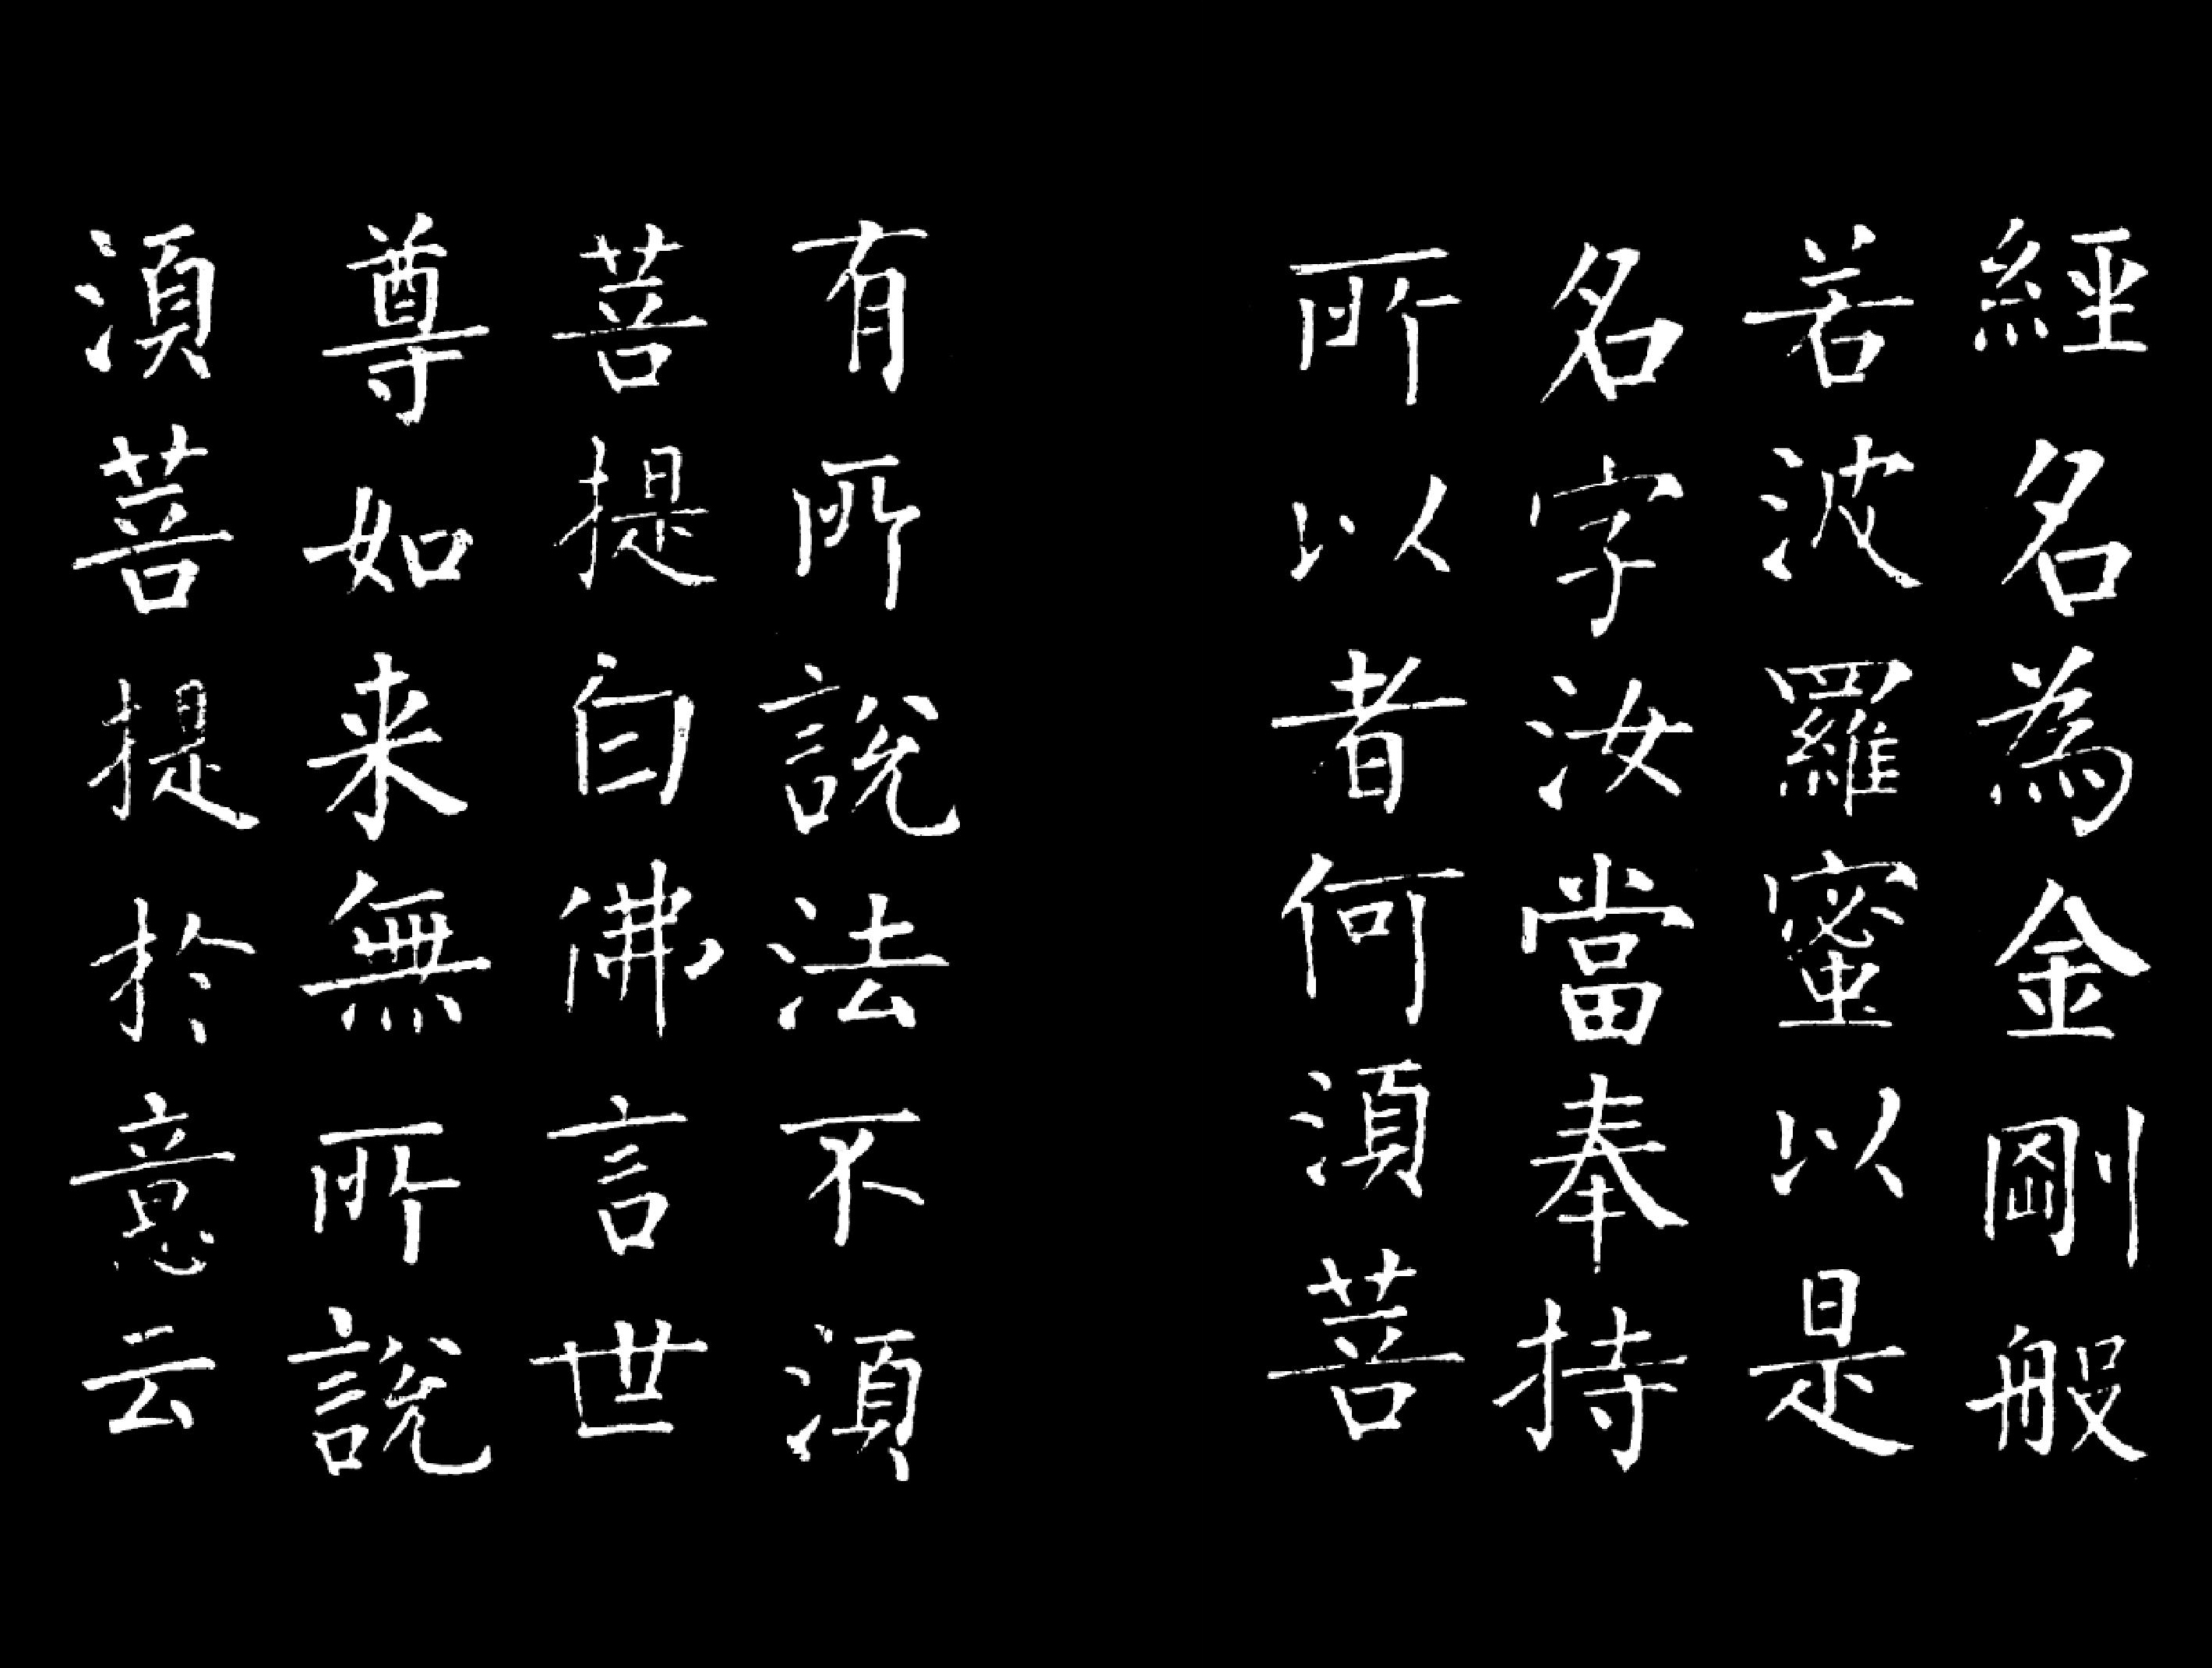 經名為金剛般
若波羅蜜以是
名字汝當奉持
所以者何須菩
有所說法不須
菩提白佛言世
尊如来無所說
須菩提於意云